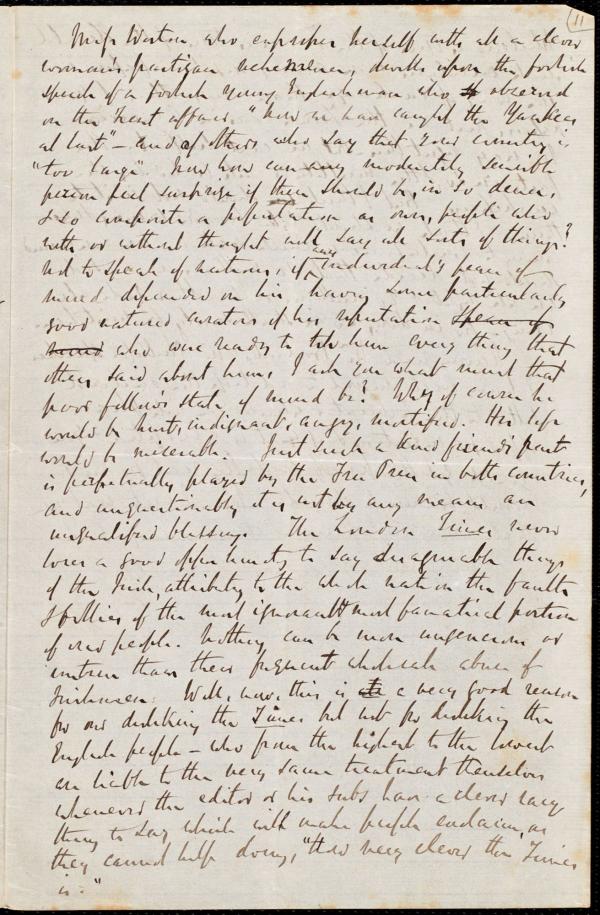 11
Miss Weston who expresses herself with all a clever
woman's partizan vehemence, dwells upon the foolish
speech of a foolish young Englishman who observed
on the Trent affair "Now we have caught the Yankees
at last" – and of others who say that your country is
"too large". Now how can any moderately sensible
person feel surprise if there should be, in so dense,
& so composite a population as ours, people who
with or without thought will say all sorts of things?
Not to speak of nations, if any individual's peace of
mind depended on his having some particularly
good natured curators of his reputation peace of
mind who were ready to tell him every thing that
others said about him, I ask you what must that
poor fellow's state of mind be? Why of course he
would be hurt, indignant, angry, mortified. His life
would be miserable. Just such a kind friend's part
is perpetually played by the Free Press in both countries,
and unquestionably it is not by any means an
unqualified blessing. The London Times never
loses a good opportunity to say disagreeable things
of the Irish, attributing to the whole nation the faults
& follies of the most ignorant & most fanatical portion
of our people. Nothing can be more ungenerous or
untrue than their frequent wholesale abuse of
Irishmen. Well, now, this is a very good reason
for our disliking the Times but not for disliking the
English people – who from the highest to the lowest
are liable to the very same treatment themselves
whenever the editor or his subs have a clever racy
thing to say which will make people exclaim, as
they cannot help doing, "How very clever the Times
is."